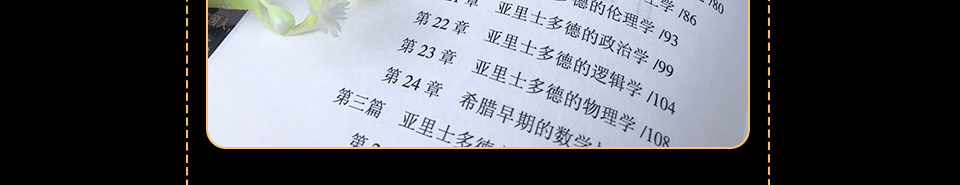 /80
学 /86
章 亚里士多德的伦理学 /93
第 22 章 亚里士多德的政治学 /99
第 23 章 亚里士多德的逻辑学 /104
第 24 章 亚里士多德的物理学 /108
第三篇 希腊早期的数学
亚里士多德
第
国人